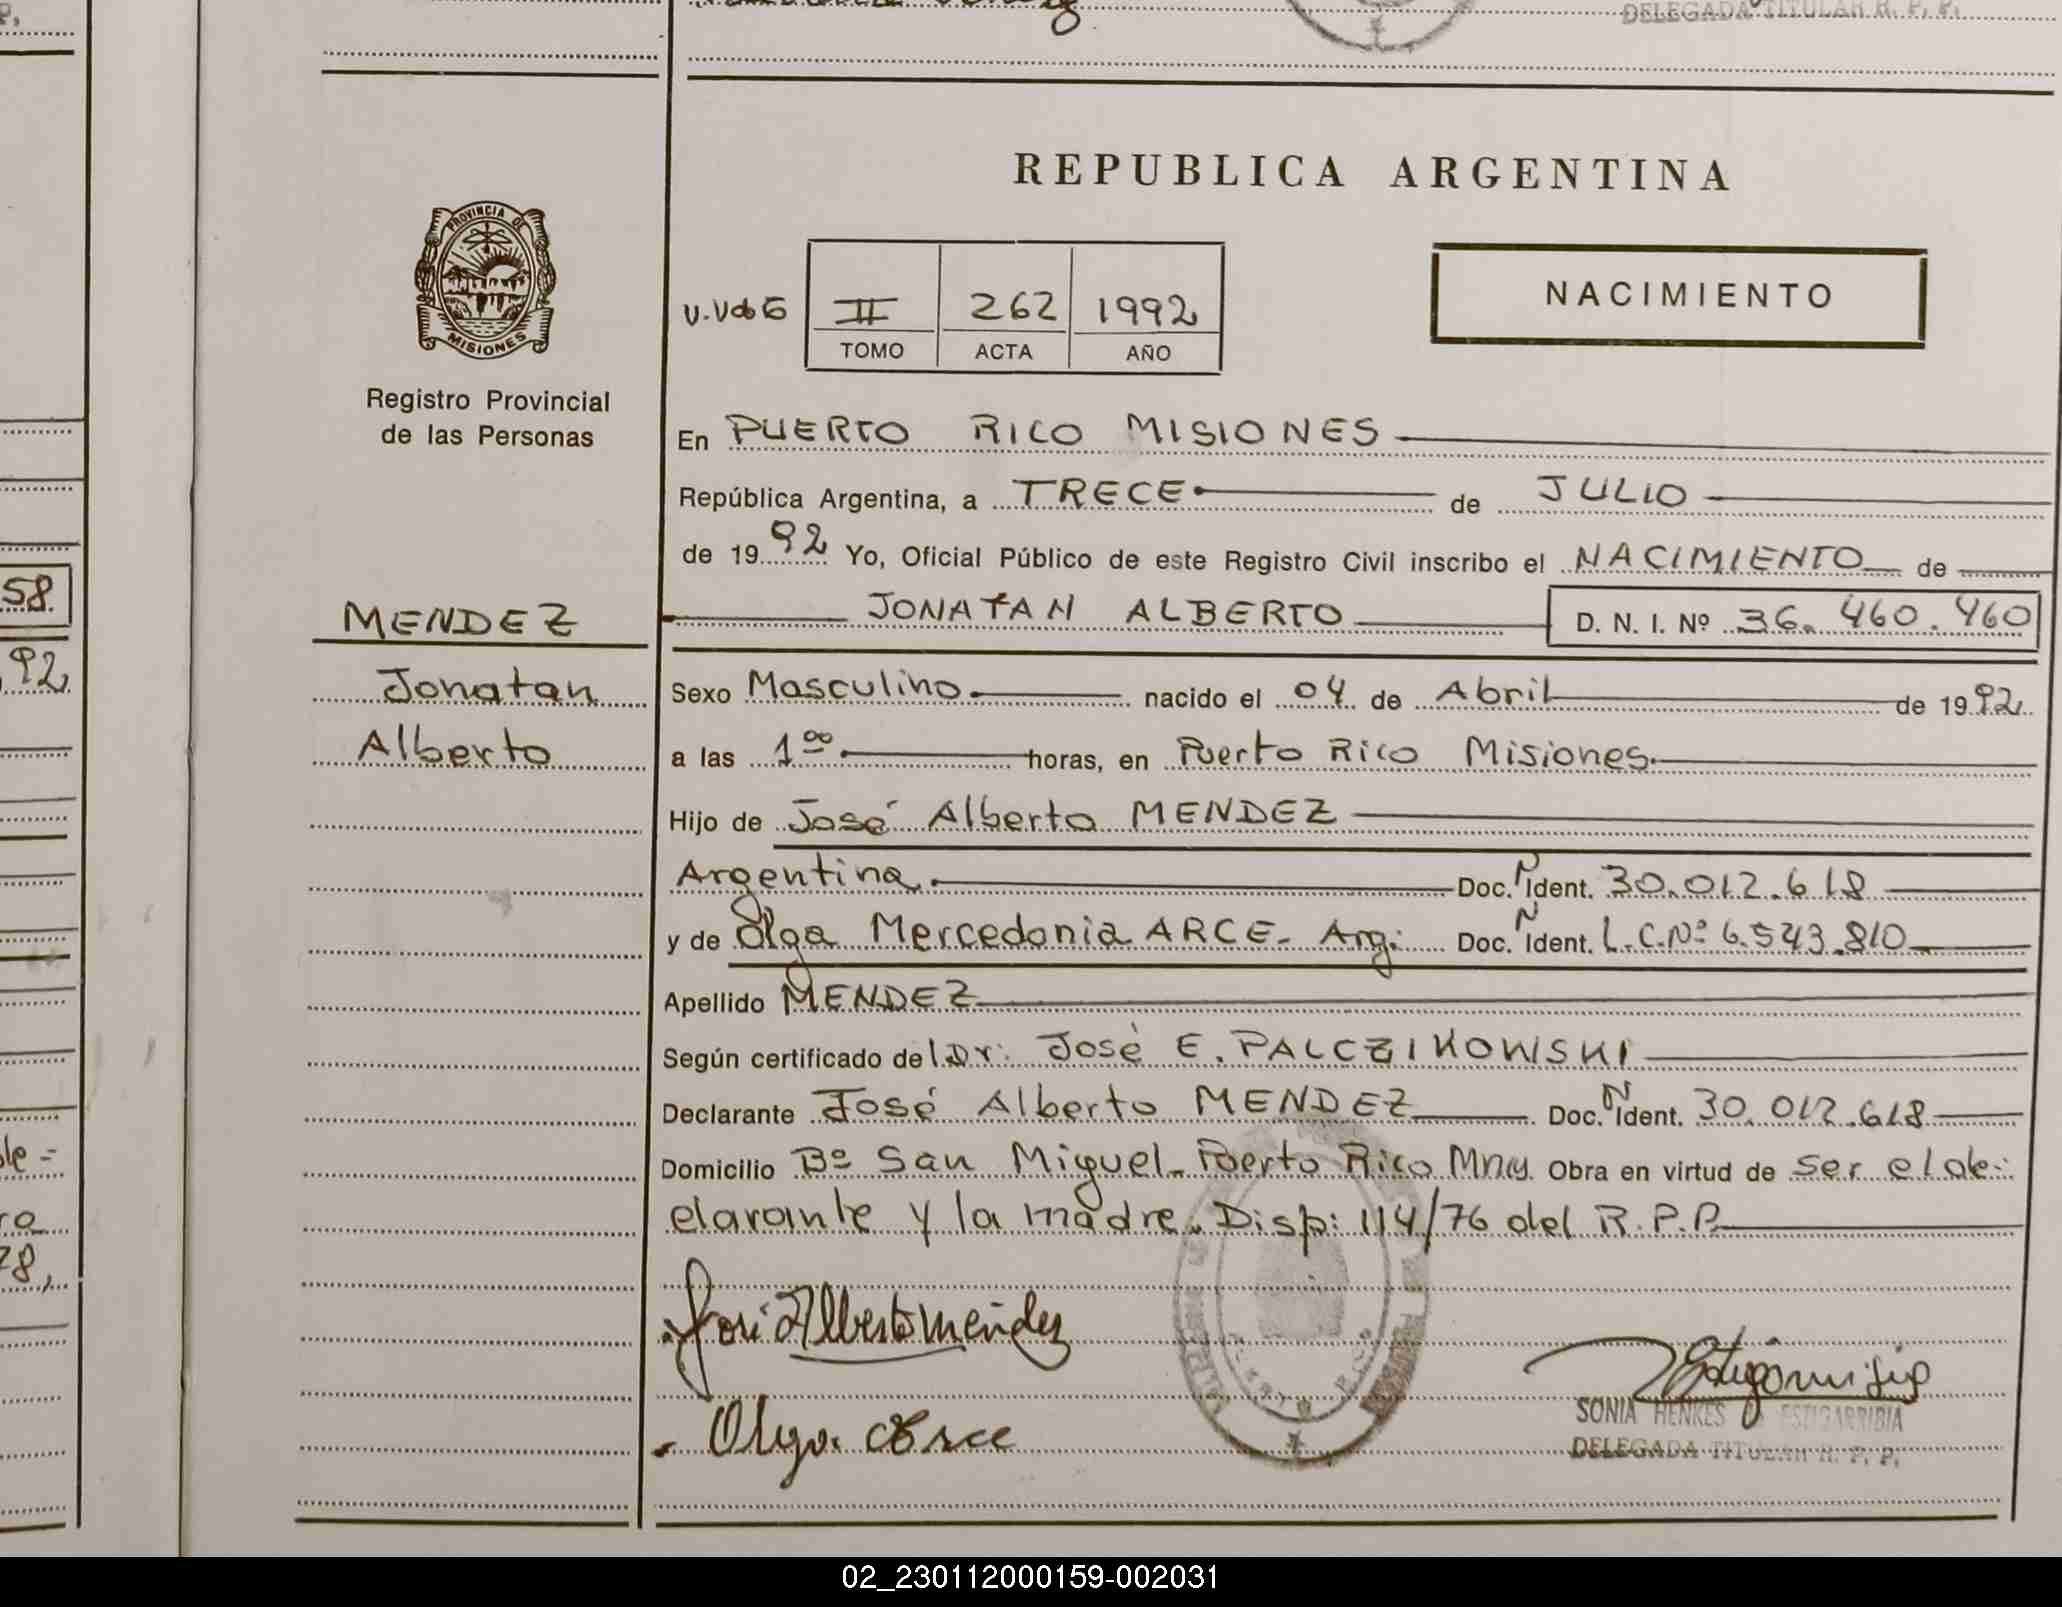 DELEGADA TITULAR R. P. P.
REPUBLICA ARGENTINA
PROVINCIA DE
MISIONES
Registro Provincial
de las Personas
II 262 1992
TOMO ACTA AÑO
NACIMIENTO
En PUERTO RICO MISIONES
República Argentina, a TRECE de JULIO
de 1992 Yo, Oficial Público de este Registro Civil inscribo el NACIMIENTO de
JONATAN ALBERTO D. N. I. Nº 36.460.460
58
MENDEZ
92
Jonatan
Alberto
Sexo Masculino nacido el 04 de Abril de 1992
a las 1°° horas, en Puerto Rico Misiones
Hijo de José Alberto MENDEZ
Argentina Doc. N Ident. 30.012.618
y de Olga Mercedonia ARCE - Arg: Doc. N Ident. L.C.Nº 6.543.810
Apellido MENDEZ
Según certificado del Dr: José E. PALCZIKOWSKI
Declarante José Alberto MENDEZ Doc. N Ident. 30.012.618
Domicilio Bº San Miguel - Puerto Rico Mnes. Obra en virtud de ser el de-
clarante y la madre. Disp: 114/76 del R.P.P.
78,
José Alberto Mendez
Olga Arce
PUERTO RICO
SONIA HENKES DE ESTIGARRIBIA
DELEGADA TITULAR R. P. P.
02_230112000159-002031